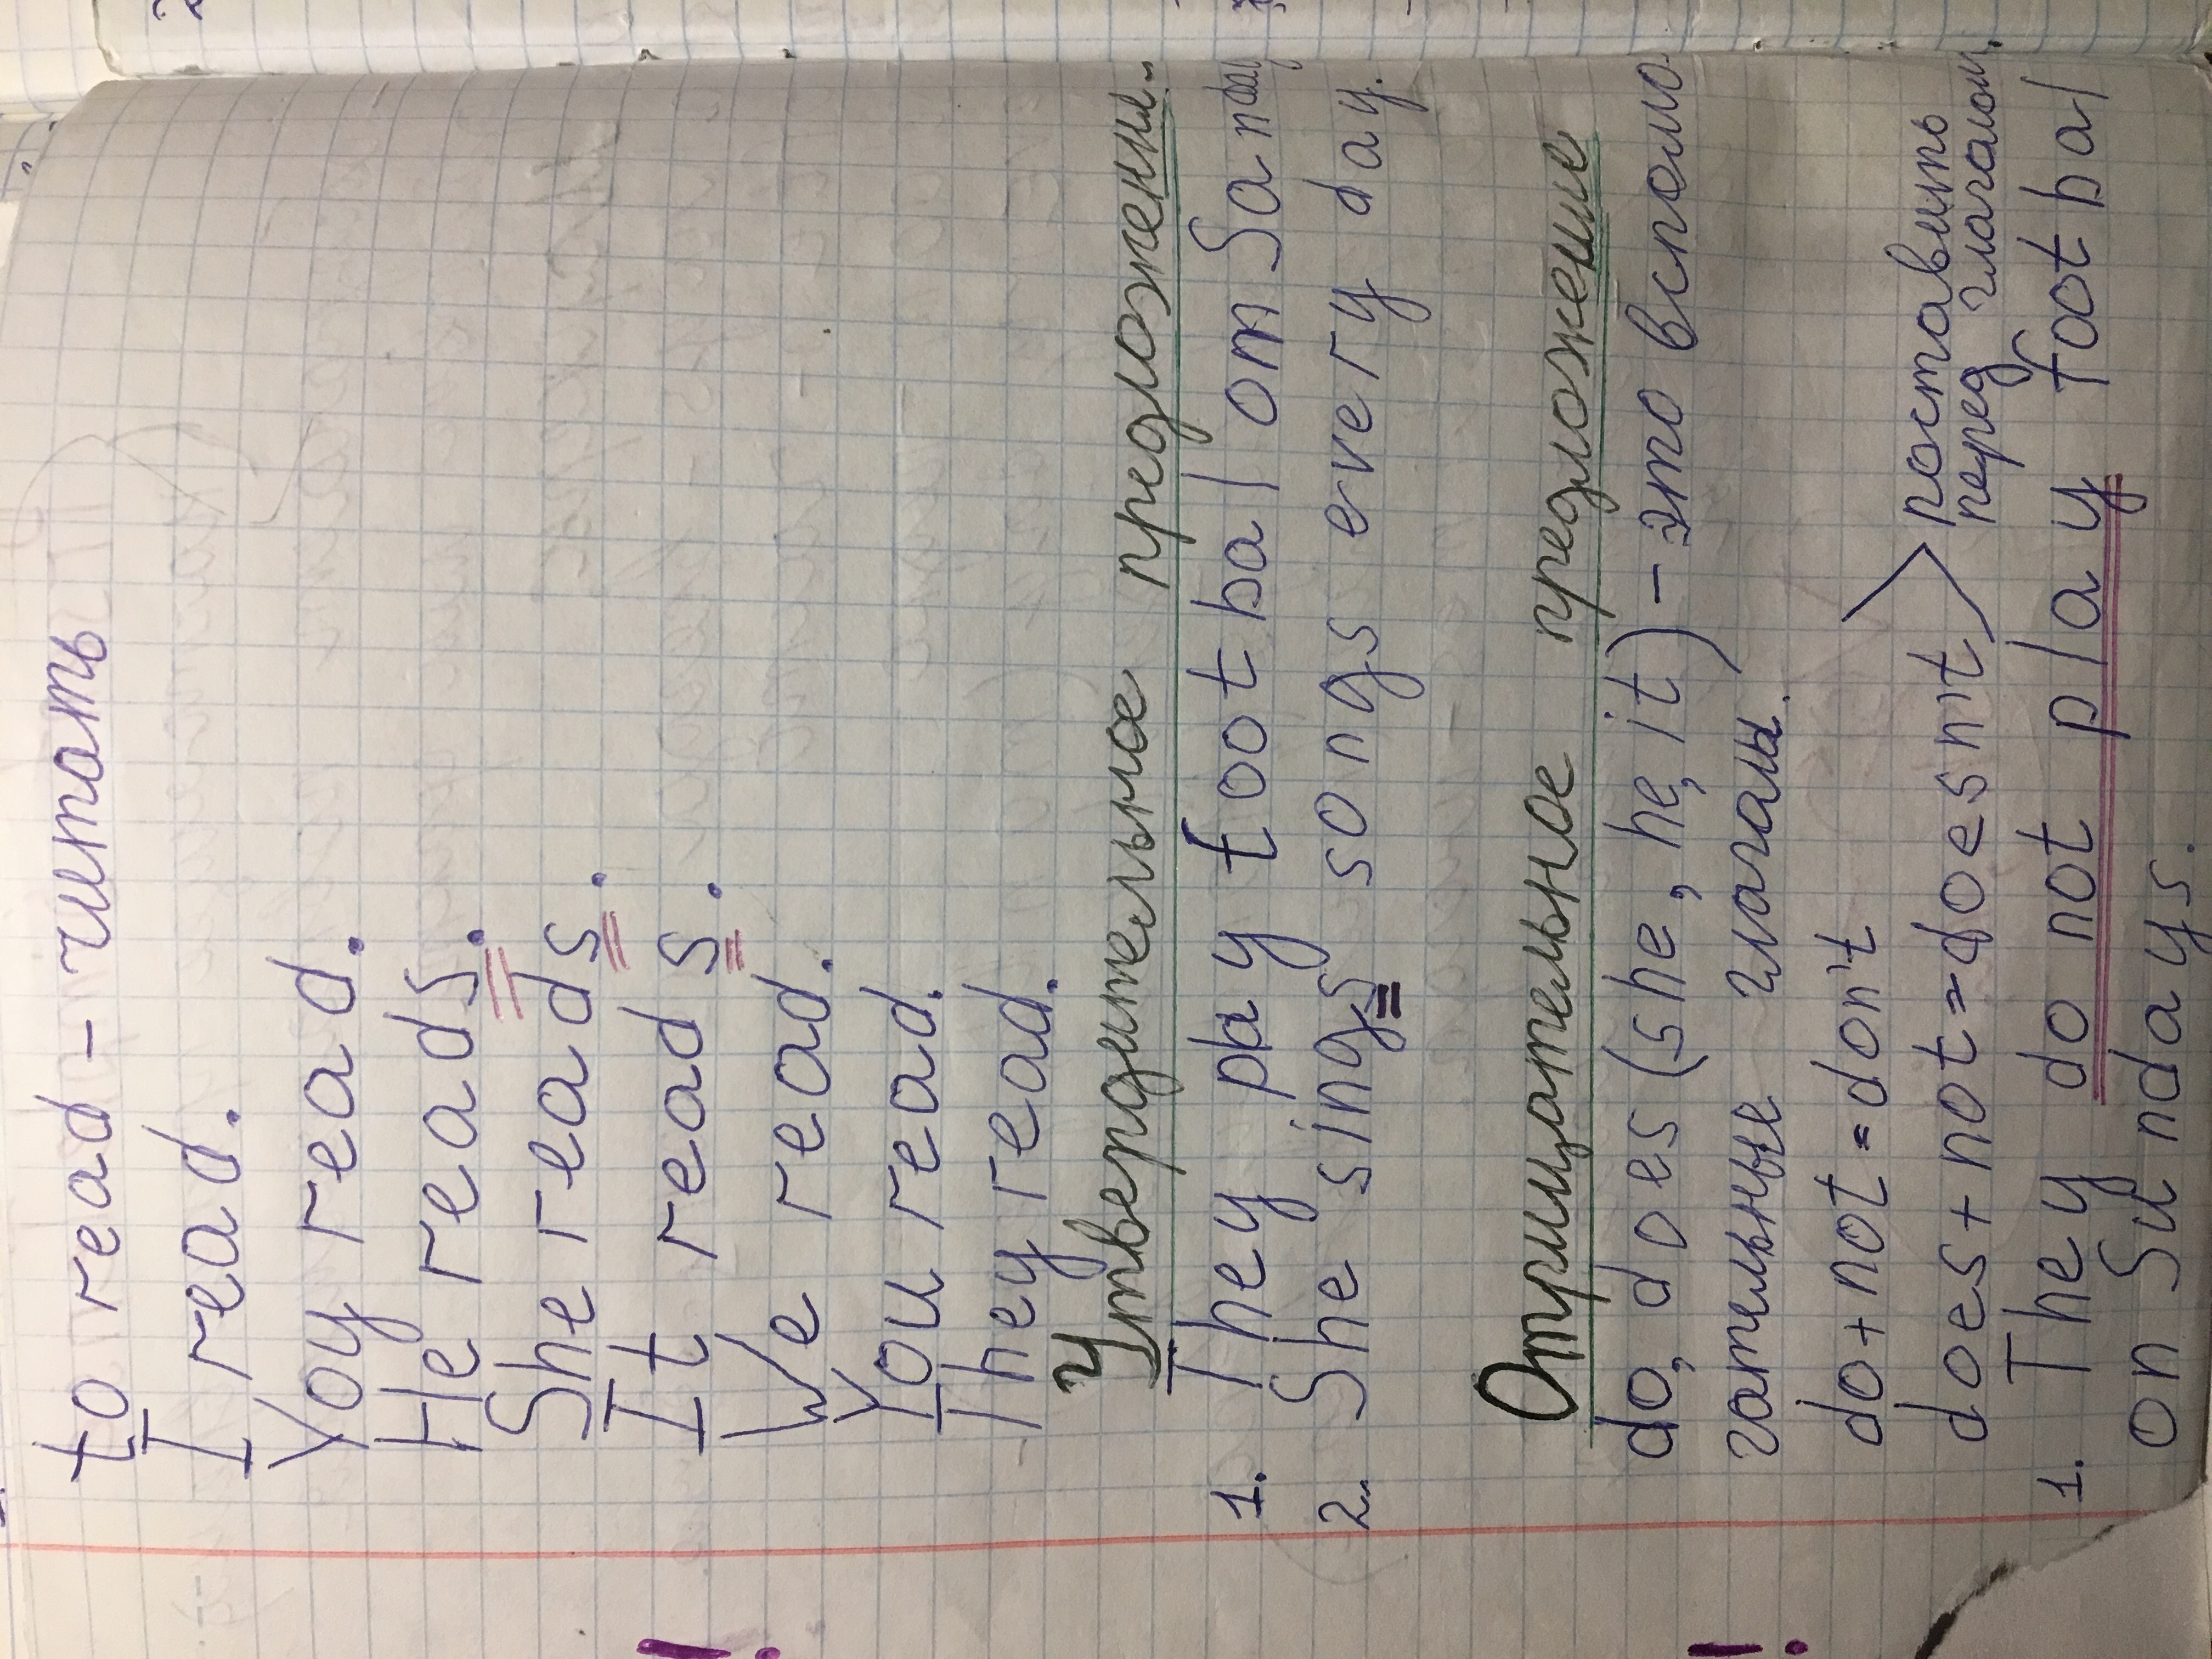 to read - читать
I read.
Yoy read.
He reads.
She reads.
It reads.
We read.
You read.
They read.
Утвердительное предложени.
1. They play footbal om Sanday
2. She sings songs every day.
Отрицательное предложение
do, does (she, he, it) - это вспомо
гательные глаголы.
do + not = don't
does + not = doesn't > поставить
перед глаголом.
1. They do not play footbal
on Sundays.